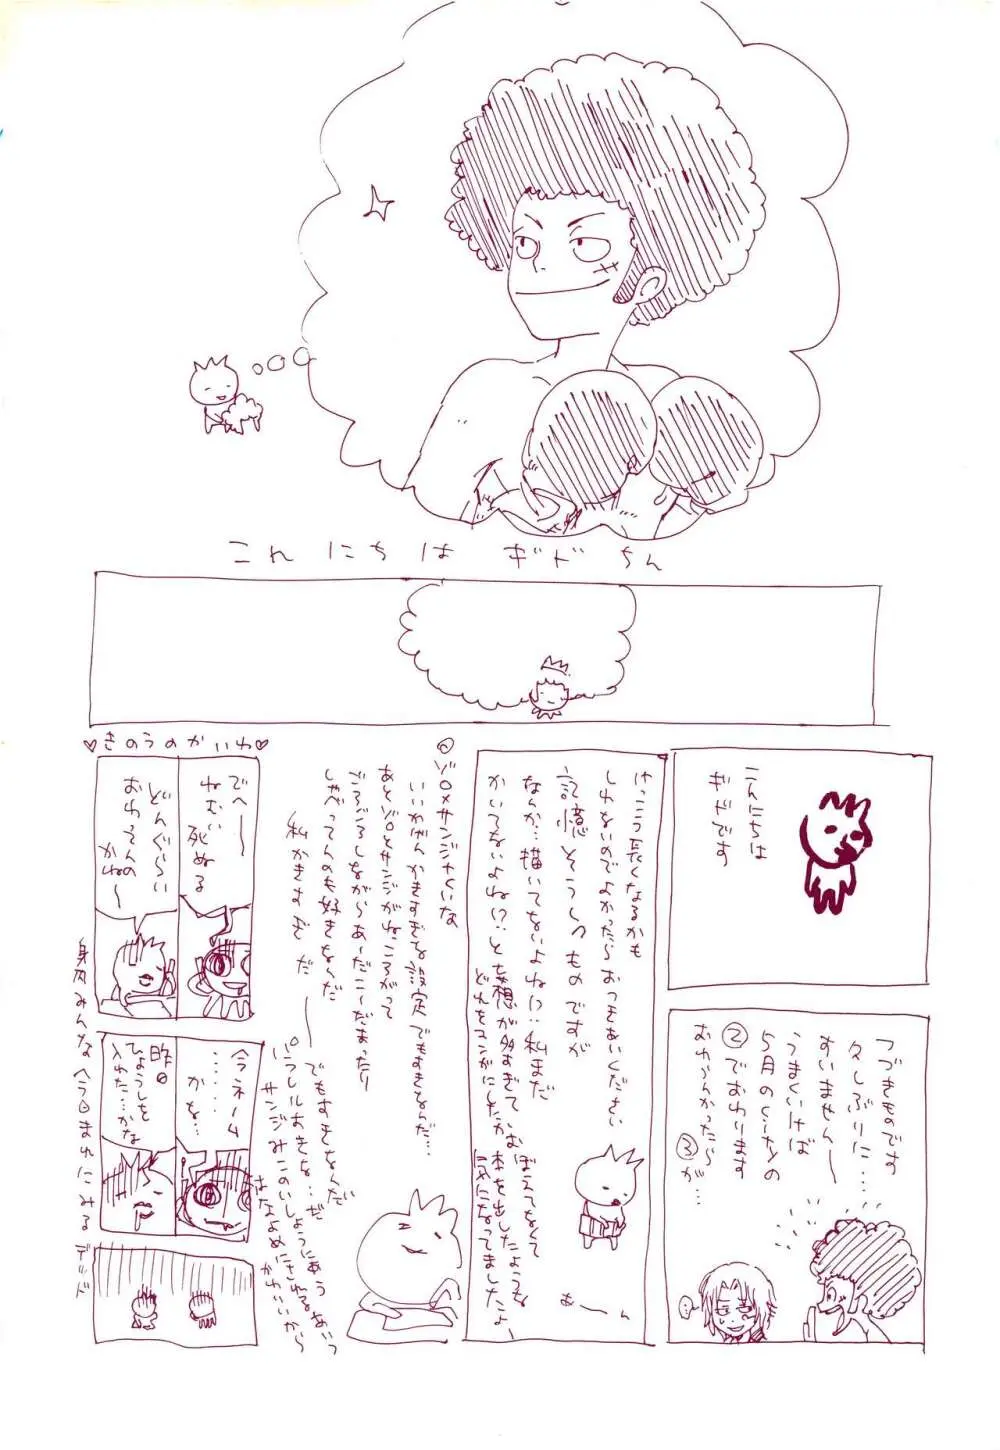 こんにちは ギドちん
こんにちは
ギドです
つづきものです
久しぶりに…
すいません〜
うまくいけば
5月のくらいの
②でおわります
おわらんかったら
③が…
けっこう長くなるかも
しれないのでよかったら おつきあいください
記憶そうしつものですが
なんか…描いてないよね!?私まだ
かいてないよね!?と妄想が多すぎて
どれをマンガにしたか
おぼえてなくて
本を出したような
気になってましたよー
あーん
ゾロ×サンジくらいな
いいかげんかきすぎな設定でもすきなんだ…
あとゾロとサンジがねころがって
ごろごろしながらあーだこーだまったり
しゃべってんのも好きなんだ
私かきすぎだ
でもすきなんだ
パラレルおきな…だ
サンジみこのいしょうにあう あいつ
はなよめにされる
かわいいから
♡きのうのかいわ♡
でへ〜
ねむい
死ぬる
どんぐらい
おわってんの
かね〜
今ネーム
……
かな…
昨日
ひょうしを
入れた…かな
身内みんなへ今日まれにみるデッド